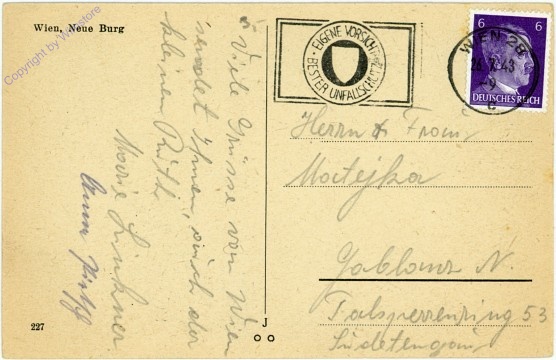 Wien, Neue Burg
Copyright by Wienstore
Viele Grüsse von Wien
sendet Ihnen, auch der
kleinen
Marie
Anna
227
EIGENE VORSICHT
BESTER UNFALLSCHUTZ
6 6
DEUTSCHES REICH
WIEN
26.7.43
-9
c
Herrn & Frau
Matejka
Gablonz N.
Talsperrenring 53
Sudetengau
J